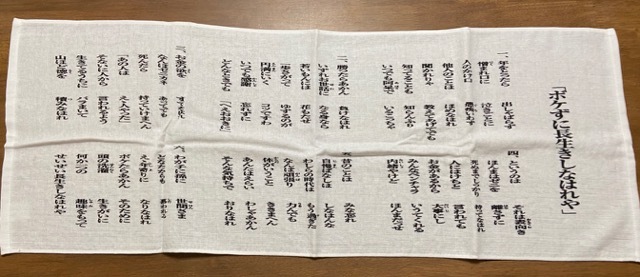 「ボケずに長生きしなはれや」
一、年をとったら 出しゃばらず
憎まれ口に 泣きごとに
人のかげ口 愚痴いわず
他人のことは ほめなはれ
聞かれりゃ 教えてあげてでも
知ってることでも 知らんふり
いつでも阿呆で いるこっちゃ
二、勝ったらあかん 負けなはれ
いずれお世話に なる身なら
若いもんには 花もたせ
一歩さがって ゆずるのが
円満にいく コツですわ
いつも感謝を 忘れずに
どんなときでも 「へえおおきに」
三、お金の欲を すてなはれ
なんぼゼニカネ あってでも
死んだら 持っていけまへん
「あの人は ええ人やった」
そないに人から 言われるよう
生きてるうちに バラまいて
山ほど徳を 積みなはれ
四、というのは それは表向き
ほんまはゼニを 離さずに
死ぬまでしっかり 持ってなはれ
人にはケチと 言われても
お金があるから 大事にし
みんなベンチャラ いうてくれる
内緒やけど ほんまだっせ
五、昔のことは みな忘れ
自慢ばなしは しなはんな
わしの時代は もう過ぎた
なんぼ頑張り 力んでも
体がいうこと ききまへん
あんたはえらい わしゃあかん
そんな気持ちで おりなはれ
六、わが子に孫に 世間さま
どなたからでも 慕われる
ええ年寄りに なりなはれ
ボケたらあかん そのために
頭の洗濯 生きがいに
何か一つの 趣味をもって
せいぜい長生きしなはれや